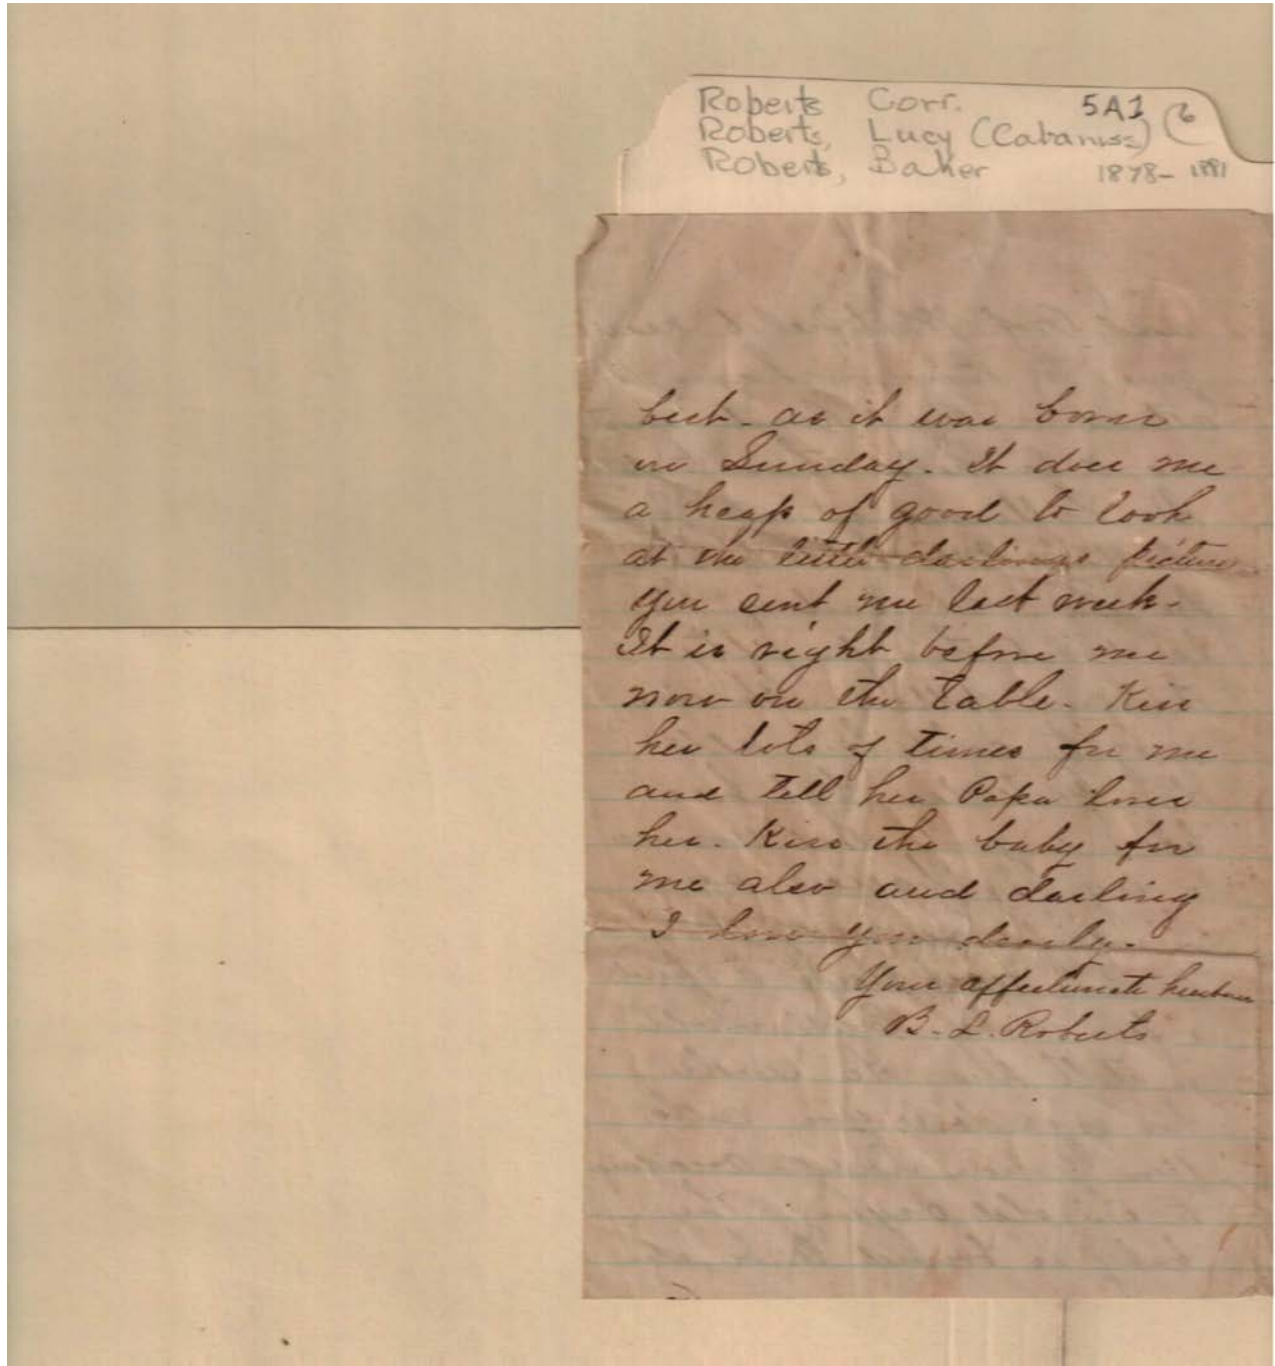 Roberts Corr. 5A1 6
Roberts, Lucy (Cabaniss)
Roberts, Baker 1878- 1881
best - as it was born
on Sunday. It does me
a heap of good to look
at the little darlings picture
you sent me last week-
It is right before me
now on the table - Kiss
her lots of times for me
and tell her Papa loves
her. Kiss the baby for
me also and darling
I love you dearly -
Your affectionate husband
B. L. Roberts